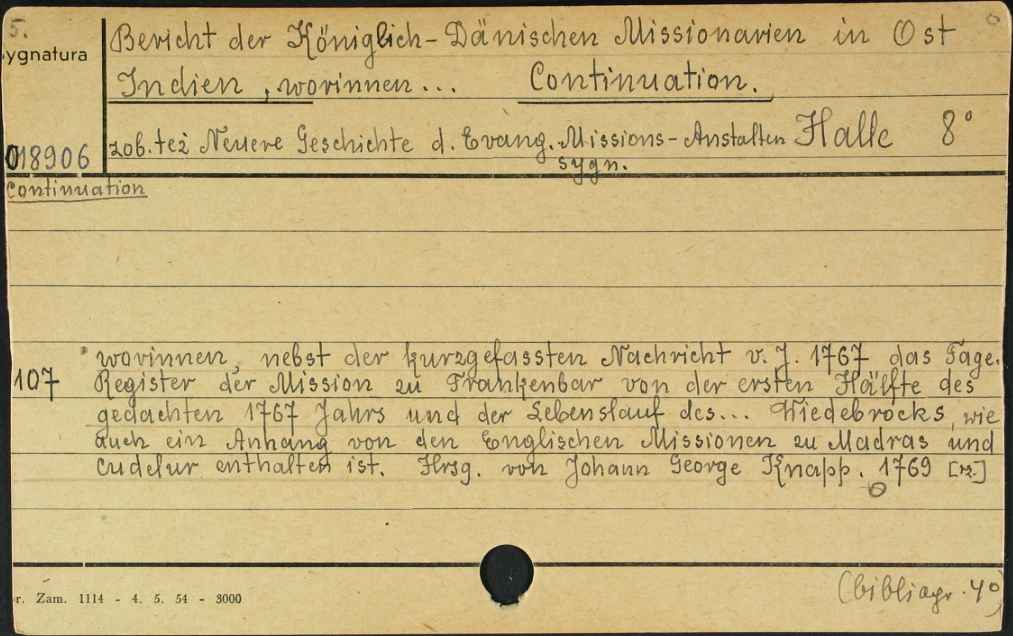 5.
ygnatura
Bericht der Königlich-Dänischen Missionarien in Ost
Indien, worinnen... Continuation.
018906
zob. też Neuere Geschichte d. Evang. Missions-Anstalten Halle 8°
sygn.
Continuation
107
worinnen, nebst der kurzgefassten Nachricht v. J. 1767 das Tage.
Register der Mission zu Trankenbar von der ersten Hälfte des
gedachten 1767 Jahrs und der Lebenslauf des... Wiedebrocks, wie
auch ein Anhang von den Englischen Missionen zu Madras und
Cudelur enthalten ist. Hrsg. von Johann George Knapp. 1769 [rz.]
r. Zam. 1114 - 4. 5. 54 - 3000
(bibliogr. 4°)